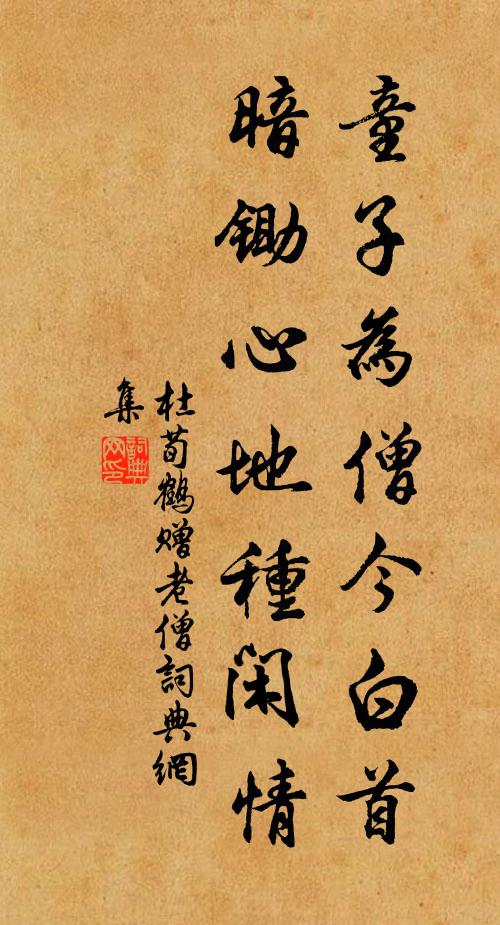 童子為僧今白首
暗鋤心地種閑情
杜荀鶴贈老僧詞典網
集
詞典網印